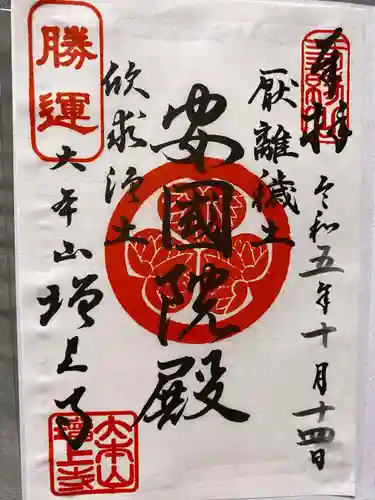 奉拝
令和五年十月十四日
厭離穢土
安國院殿
欣求浄土
勝運
大本山
増上寺
大本山
増上寺